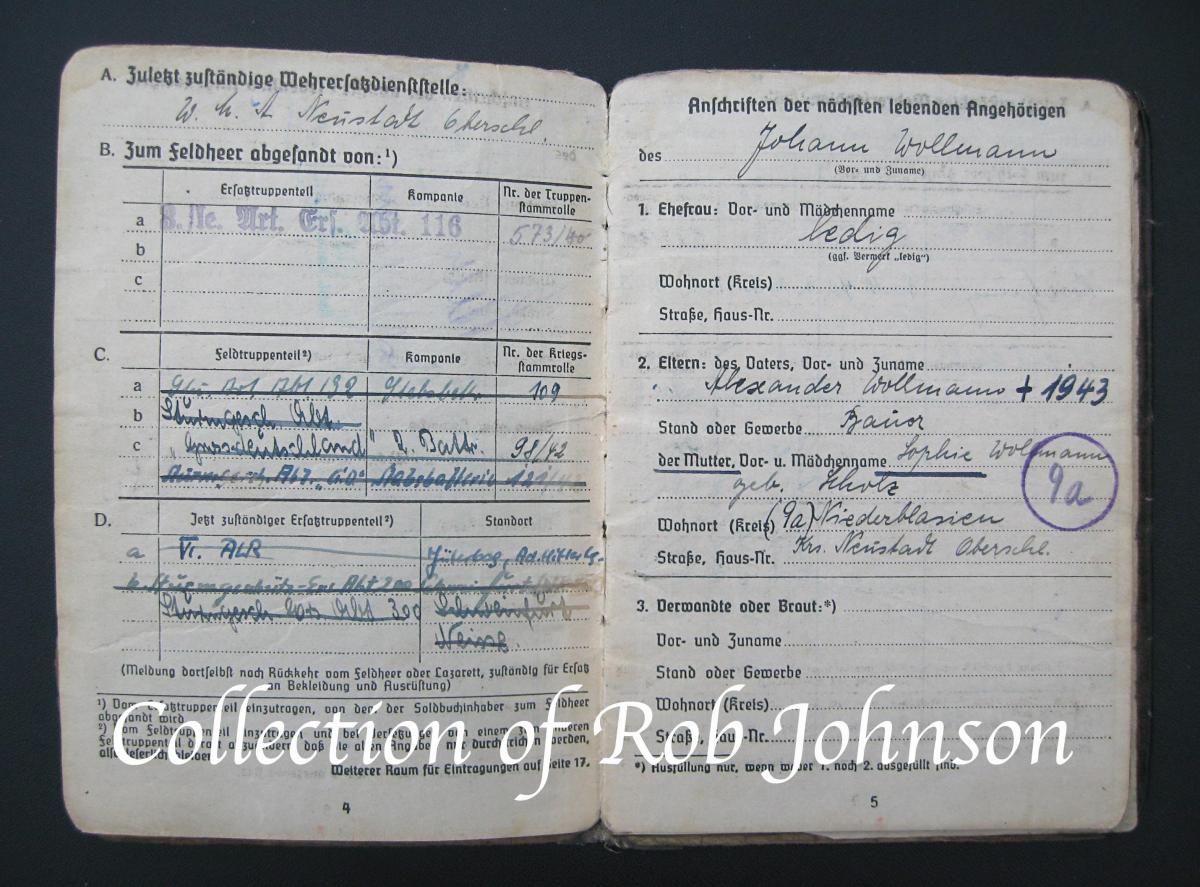 A. Zuletzt zuständige Wehrersatzdienststelle:
W. M. A Neustadt Oberschl.
B. Zum Feldheer abgesandt von:¹)
Ersatztruppenteil Kompanie Nr. der Truppenstammrolle
a Art. Ers. Abt. 116 573/40
b
c
C. Feldtruppenteil²) Kompanie Nr. der Kriegsstammrolle
a 109
b Sturmgesch. Abt.
c „Grossdeutschland" 2. Battr. 98/42
Sturmgesch. Abt. „G.D" Stabsbatterie
D. Jetzt zuständiger Ersatztruppenteil²) Standort
a VI. ALR Jüterbog, Ad.Hitler Lg.
b Sturmgeschütz-Ers Abt 200 Schweinfurt
Sturmgesch Ers Abt 300 Schweinfurt
Neisse
(Meldung dortselbst nach Rückkehr vom Feldheer oder Lazarett, zuständig für Ersatz
an Bekleidung und Ausrüstung)
¹) Vom Ersatztruppenteil einzutragen, von dem der Soldbuchinhaber zum Feldheer
abgesandt wird
²) Vom Feldtruppenteil einzutragen und bei Versetzungen von einem zum anderen
Feldtruppenteil derart abzuändern, daß die alten Angaben nur durchstrichen werden,
also leserlich bleiben
Weiterer Raum für Eintragungen auf Seite 17.
4
Anschriften der nächsten lebenden Angehörigen
des Johann Wollmann
(Vor- und Zuname)
1. Ehefrau: Vor- und Mädchenname
ledig
(ggf. Vermerk „ledig")
Wohnort (Kreis)
Straße, Haus-Nr.
2. Eltern: des Vaters, Vor- und Zuname
Alexander Wollmann + 1943
Stand oder Gewerbe Bauer
der Mutter, Vor- u. Mädchenname Sophie Wollmann
geb. Scholz
9a
Wohnort (Kreis) (9a) Niederblasien
Straße, Haus-Nr. Krs. Neustadt Oberschl.
3. Verwandte oder Braut:*)
Vor- und Zuname
Stand oder Gewerbe
Wohnort (Kreis)
Straße, Haus-Nr.
*) Ausfüllung nur, wenn weder 1. noch 2. ausgefüllt sind.
5
Collection of Rob Johnson